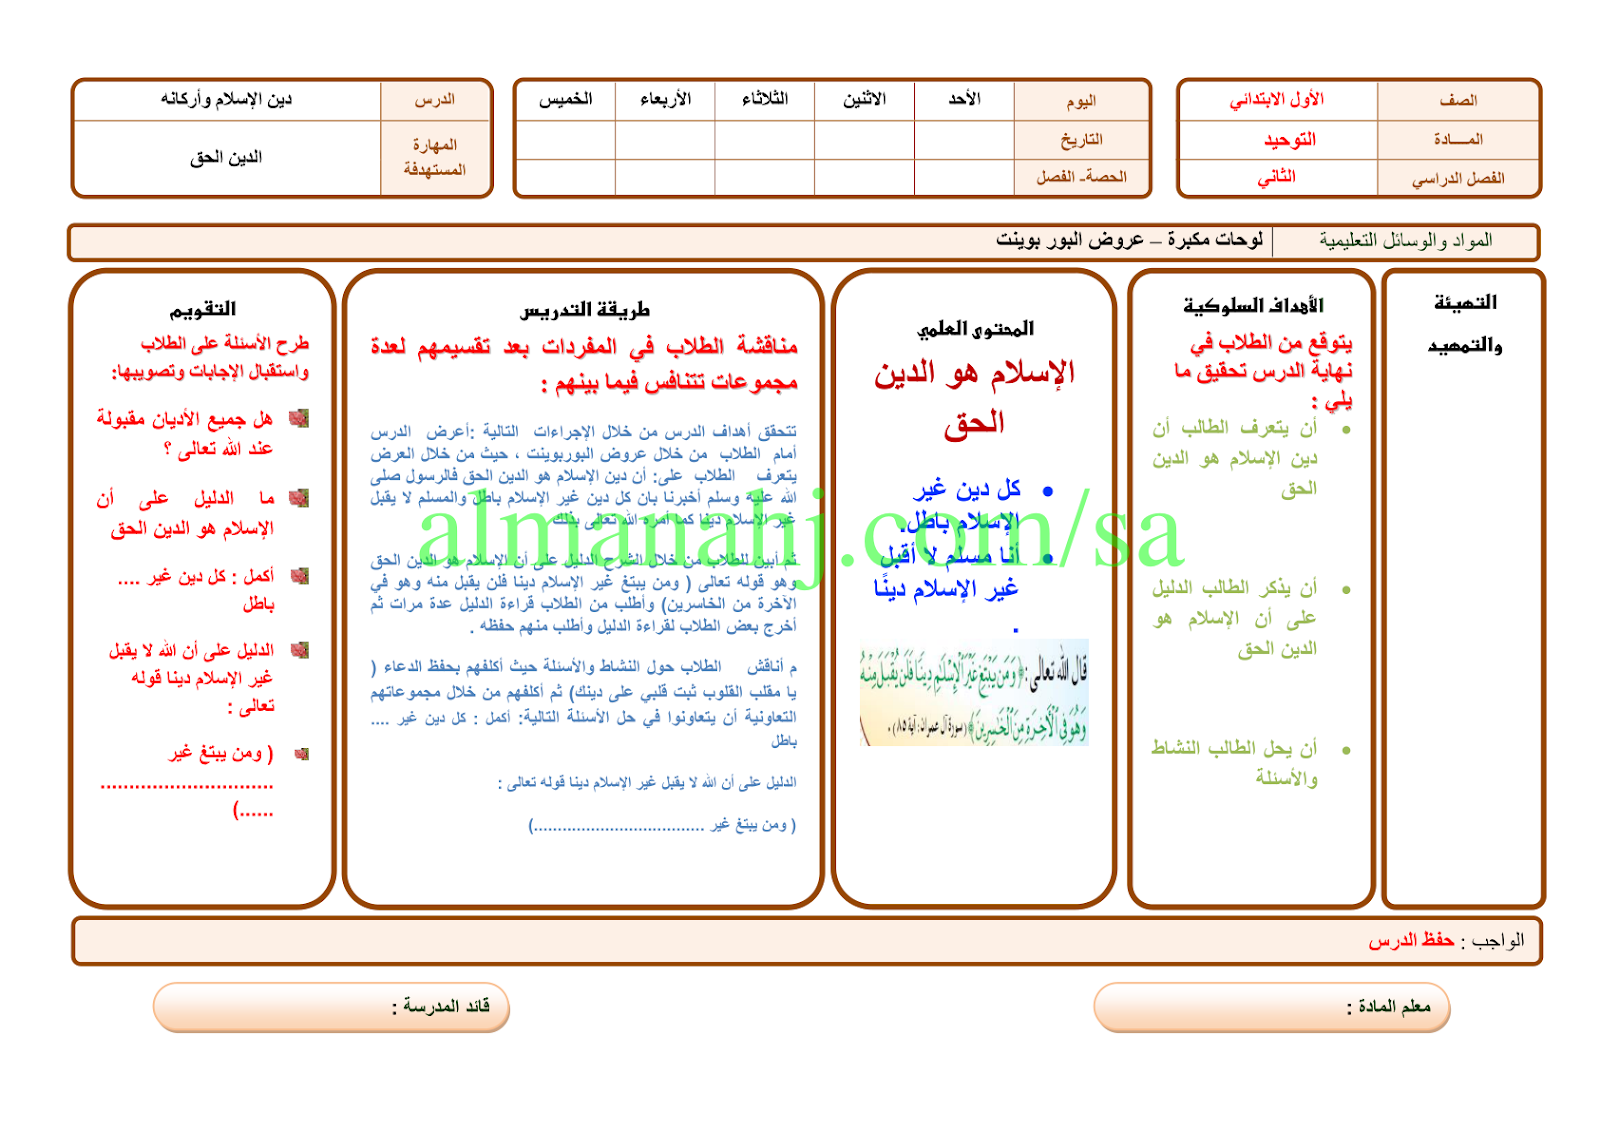 الصف
الأول الابتدائي
المـــادة
التوحيد
الفصل الدراسي
الثاني
اليوم
الأحد
الاثنين
الثلاثاء
الأربعاء
الخميس
التاريخ
الحصة- الفصل
الدرس
دين الإسلام وأركانه
المهارة
المستهدفة
الدين الحق
المواد والوسائل التعليمية
لوحات مكبرة – عروض البور بوينت
التهيئة
والتمهيد
الأهداف السلوكية
يتوقع من الطلاب في
نهاية الدرس تحقيق ما
يلي :
• أن يتعرف الطالب أن
دين الإسلام هو الدين
الحق
• أن يذكر الطالب الدليل
على أن الإسلام هو
الدين الحق
• أن يحل الطالب النشاط
والأسئلة
المحتوى العلمي
الإسلام هو الدين
الحق
• كل دين غير
الإسلام باطل.
• أنا مسلم لا أقبل
غير الإسلام دينًا
.
قال الله تعالى: ﴿ وَمَن يَبْتَغِ غَيْرَ ٱلْإِسْلَٰمِ دِينًا فَلَن يُقْبَلَ مِنْهُ
وَهُوَ فِى ٱلْأٓخِرَةِ مِنَ ٱلْخَٰسِرِينَ﴾ (سورة آل عمران: آية ٨٥) .
طريقة التدريس
مناقشة الطلاب في المفردات بعد تقسيمهم لعدة
مجموعات تتنافس فيما بينهم :
تتحقق أهداف الدرس من خلال الإجراءات التالية :أعرض الدرس
أمام الطلاب من خلال عروض البوربوينت ، حيث من خلال العرض
يتعرف الطلاب على: أن دين الإسلام هو الدين الحق فالرسول صلى
الله عليه وسلم أخبرنا بان كل دين غير الإسلام باطل والمسلم لا يقبل
غير الإسلام دينا كما أمره الله تعالى بذلك
ثم أبين للطلاب من خلال الشرح الدليل على أن الإسلام هو الدين الحق
وهو قوله تعالى ( ومن يبتغ غير الإسلام دينا فلن يقبل منه وهو في
الآخرة من الخاسرين) وأطلب من الطلاب قراءة الدليل عدة مرات ثم
أخرج بعض الطلاب لقراءة الدليل وأطلب منهم حفظه .
م أناقش الطلاب حول النشاط والأسئلة حيث أكلفهم بحفظ الدعاء (
يا مقلب القلوب ثبت قلبي على دينك) ثم أكلفهم من خلال مجموعاتهم
التعاونية أن يتعاونوا في حل الأسئلة التالية: أكمل : كل دين غير ....
باطل
الدليل على أن الله لا يقبل غير الإسلام دينا قوله تعالى :
( ومن يبتغ غير ....................................)
التقويم
طرح الأسئلة على الطلاب
واستقبال الإجابات وتصويبها:
هل جميع الأديان مقبولة
عند الله تعالى ؟
ما الدليل على أن
الإسلام هو الدين الحق
أكمل : كل دين غير ....
باطل
الدليل على أن الله لا يقبل
غير الإسلام دينا قوله
تعالى :
( ومن يبتغ غير
..............................
......)
almanahj.com/sa
الواجب : حفظ الدرس
معلم المادة :
قائد المدرسة :